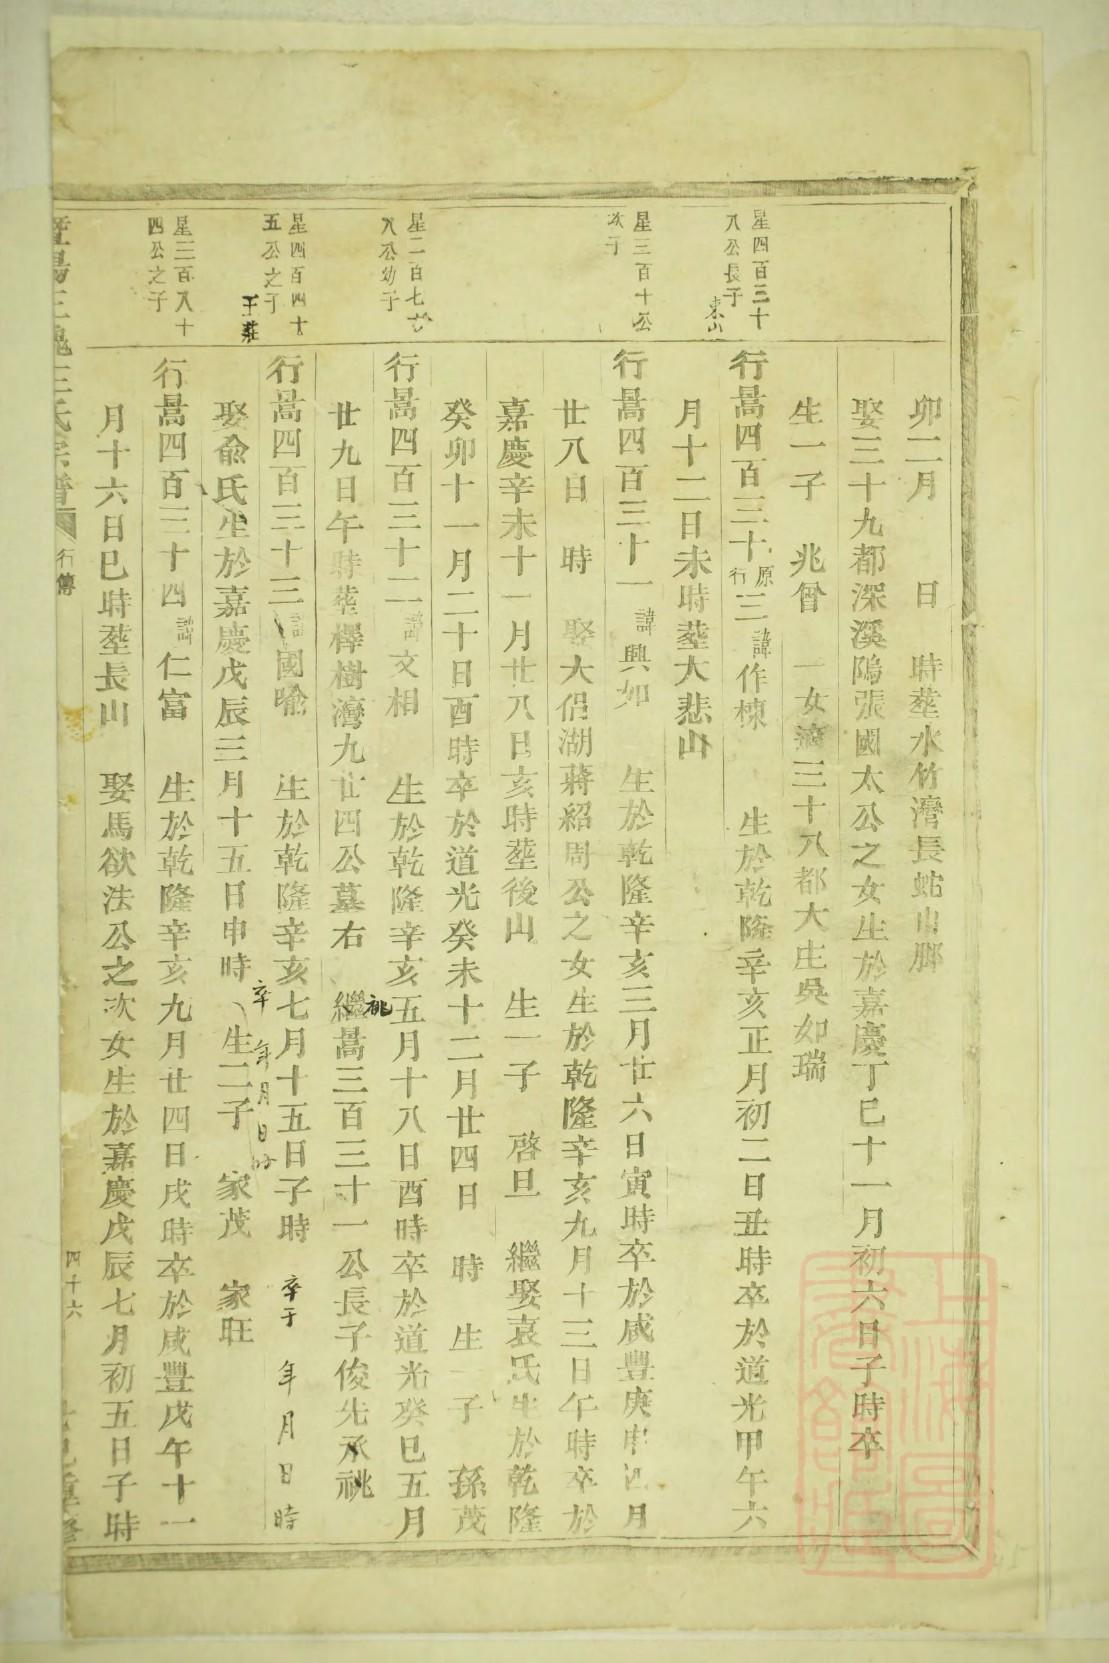 卯二月　日　時塟水竹灣長蛇山脚
娶三十九都深溪隝張國太公之女生於嘉慶丁巳十一月初六日子時卒
生一子　兆曾　一女適三十八都大庄吳如瑞
星四百三十
八公長子
東山
行暠四百三十原行三諱作棟　生於乾隆辛亥正月初二日丑時卒於道光甲午六
月十二日未時塟大悲山
星三百十公
次子
行暠四百三十一諱興如　生於乾隆辛亥三月廿六日寅時卒於咸豐庚申四月
廿八日　時　娶大侶湖蔣紹周公之女生於乾隆辛亥九月十三日午時卒於
嘉慶辛未十一月廿八日亥時塟後山　生一子　啓旦　繼娶袁氏生於乾隆
癸卯十一月二十日酉時卒於道光癸未十二月廿四日　時　生一子　孫茂
星二百七十
八公幼子
行暠四百三十二諱文相　生於乾隆辛亥五月十八日酉時卒於道光癸巳五月
廿九日午時塟檡樹灣九廿四公墓右　繼暠三百三十一公長子俊先承祧
祧
星四百四十
五公之子
王莊
行暠四百三十三諱國喻　生於乾隆辛亥七月十五日子時　卒于　年　月　日　時
娶俞氏生於嘉慶戊辰三月十五日申時　生二子　家茂　家旺
卒　年　月　日　時
星三百八十
四公之子
行暠四百三十四諱仁富　生於乾隆辛亥九月廿四日戌時卒於咸豐戊午十一
月十六日巳時塟長山　娶馬欲法公之次女生於嘉慶戊辰七月初五日子時
暨陽王氏宗譜　行傳　四十六　重修
上海圖書館藏